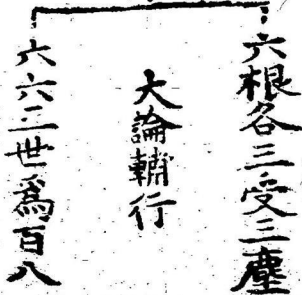 六根各三受三塵
大論輔行
六六三世爲百八